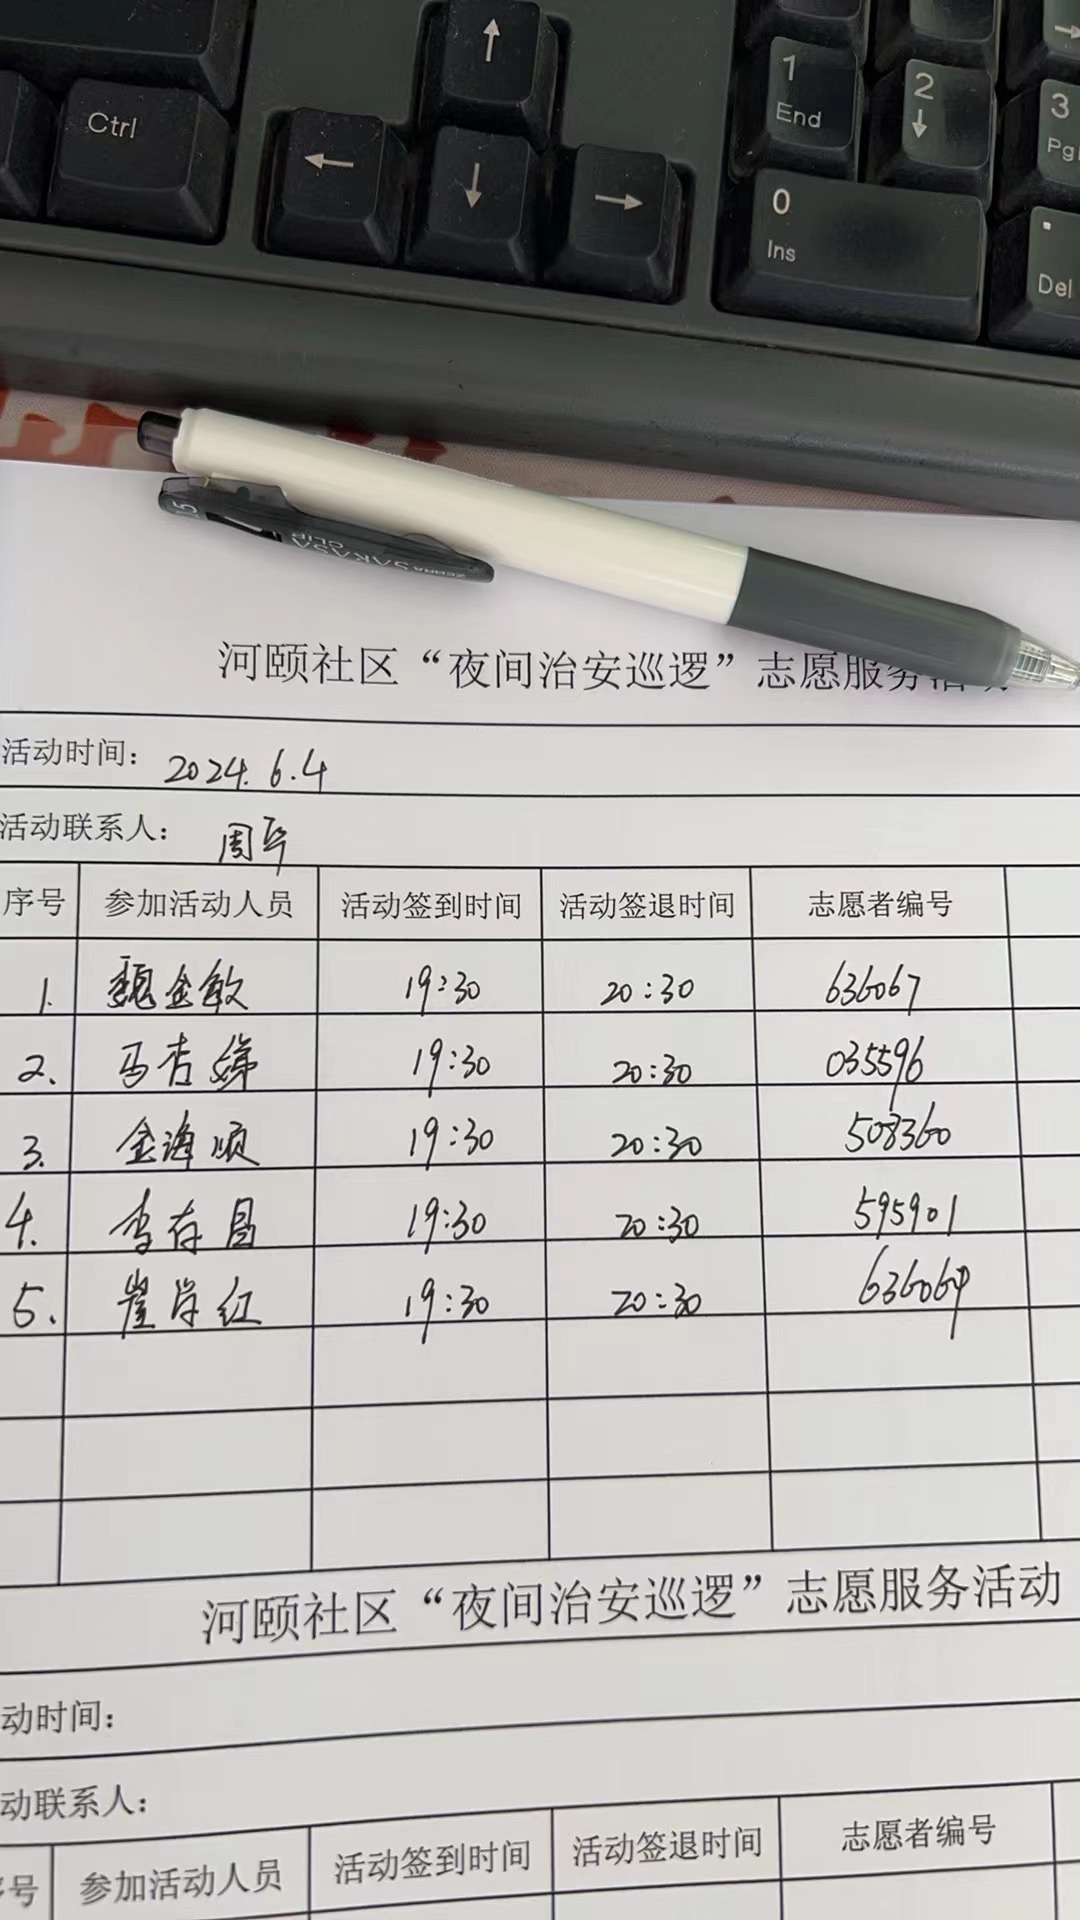 ↑
1
End
2
↓
3
Ctrl
←
↓
→
0
Ins
.
Del
ZEBRA SAKASA
CLIP
河颐社区“夜间治安巡逻”志愿服务活动
活动时间： 2024.6.4
活动联系人： 周
序号 参加活动人员 活动签到时间 活动签退时间 志愿者编号
1. 魏金敏 19:30 20:30 636067
2. 马杏娣 19:30 20:30 035596
3. 金海顺 19:30 20:30 508360
4. 李存昌 19:30 20:30 595901
5. 崔肖红 19:30 20:30 636069
河颐社区“夜间治安巡逻”志愿服务活动
动时间：
动联系人：
号 参加活动人员 活动签到时间 活动签退时间 志愿者编号